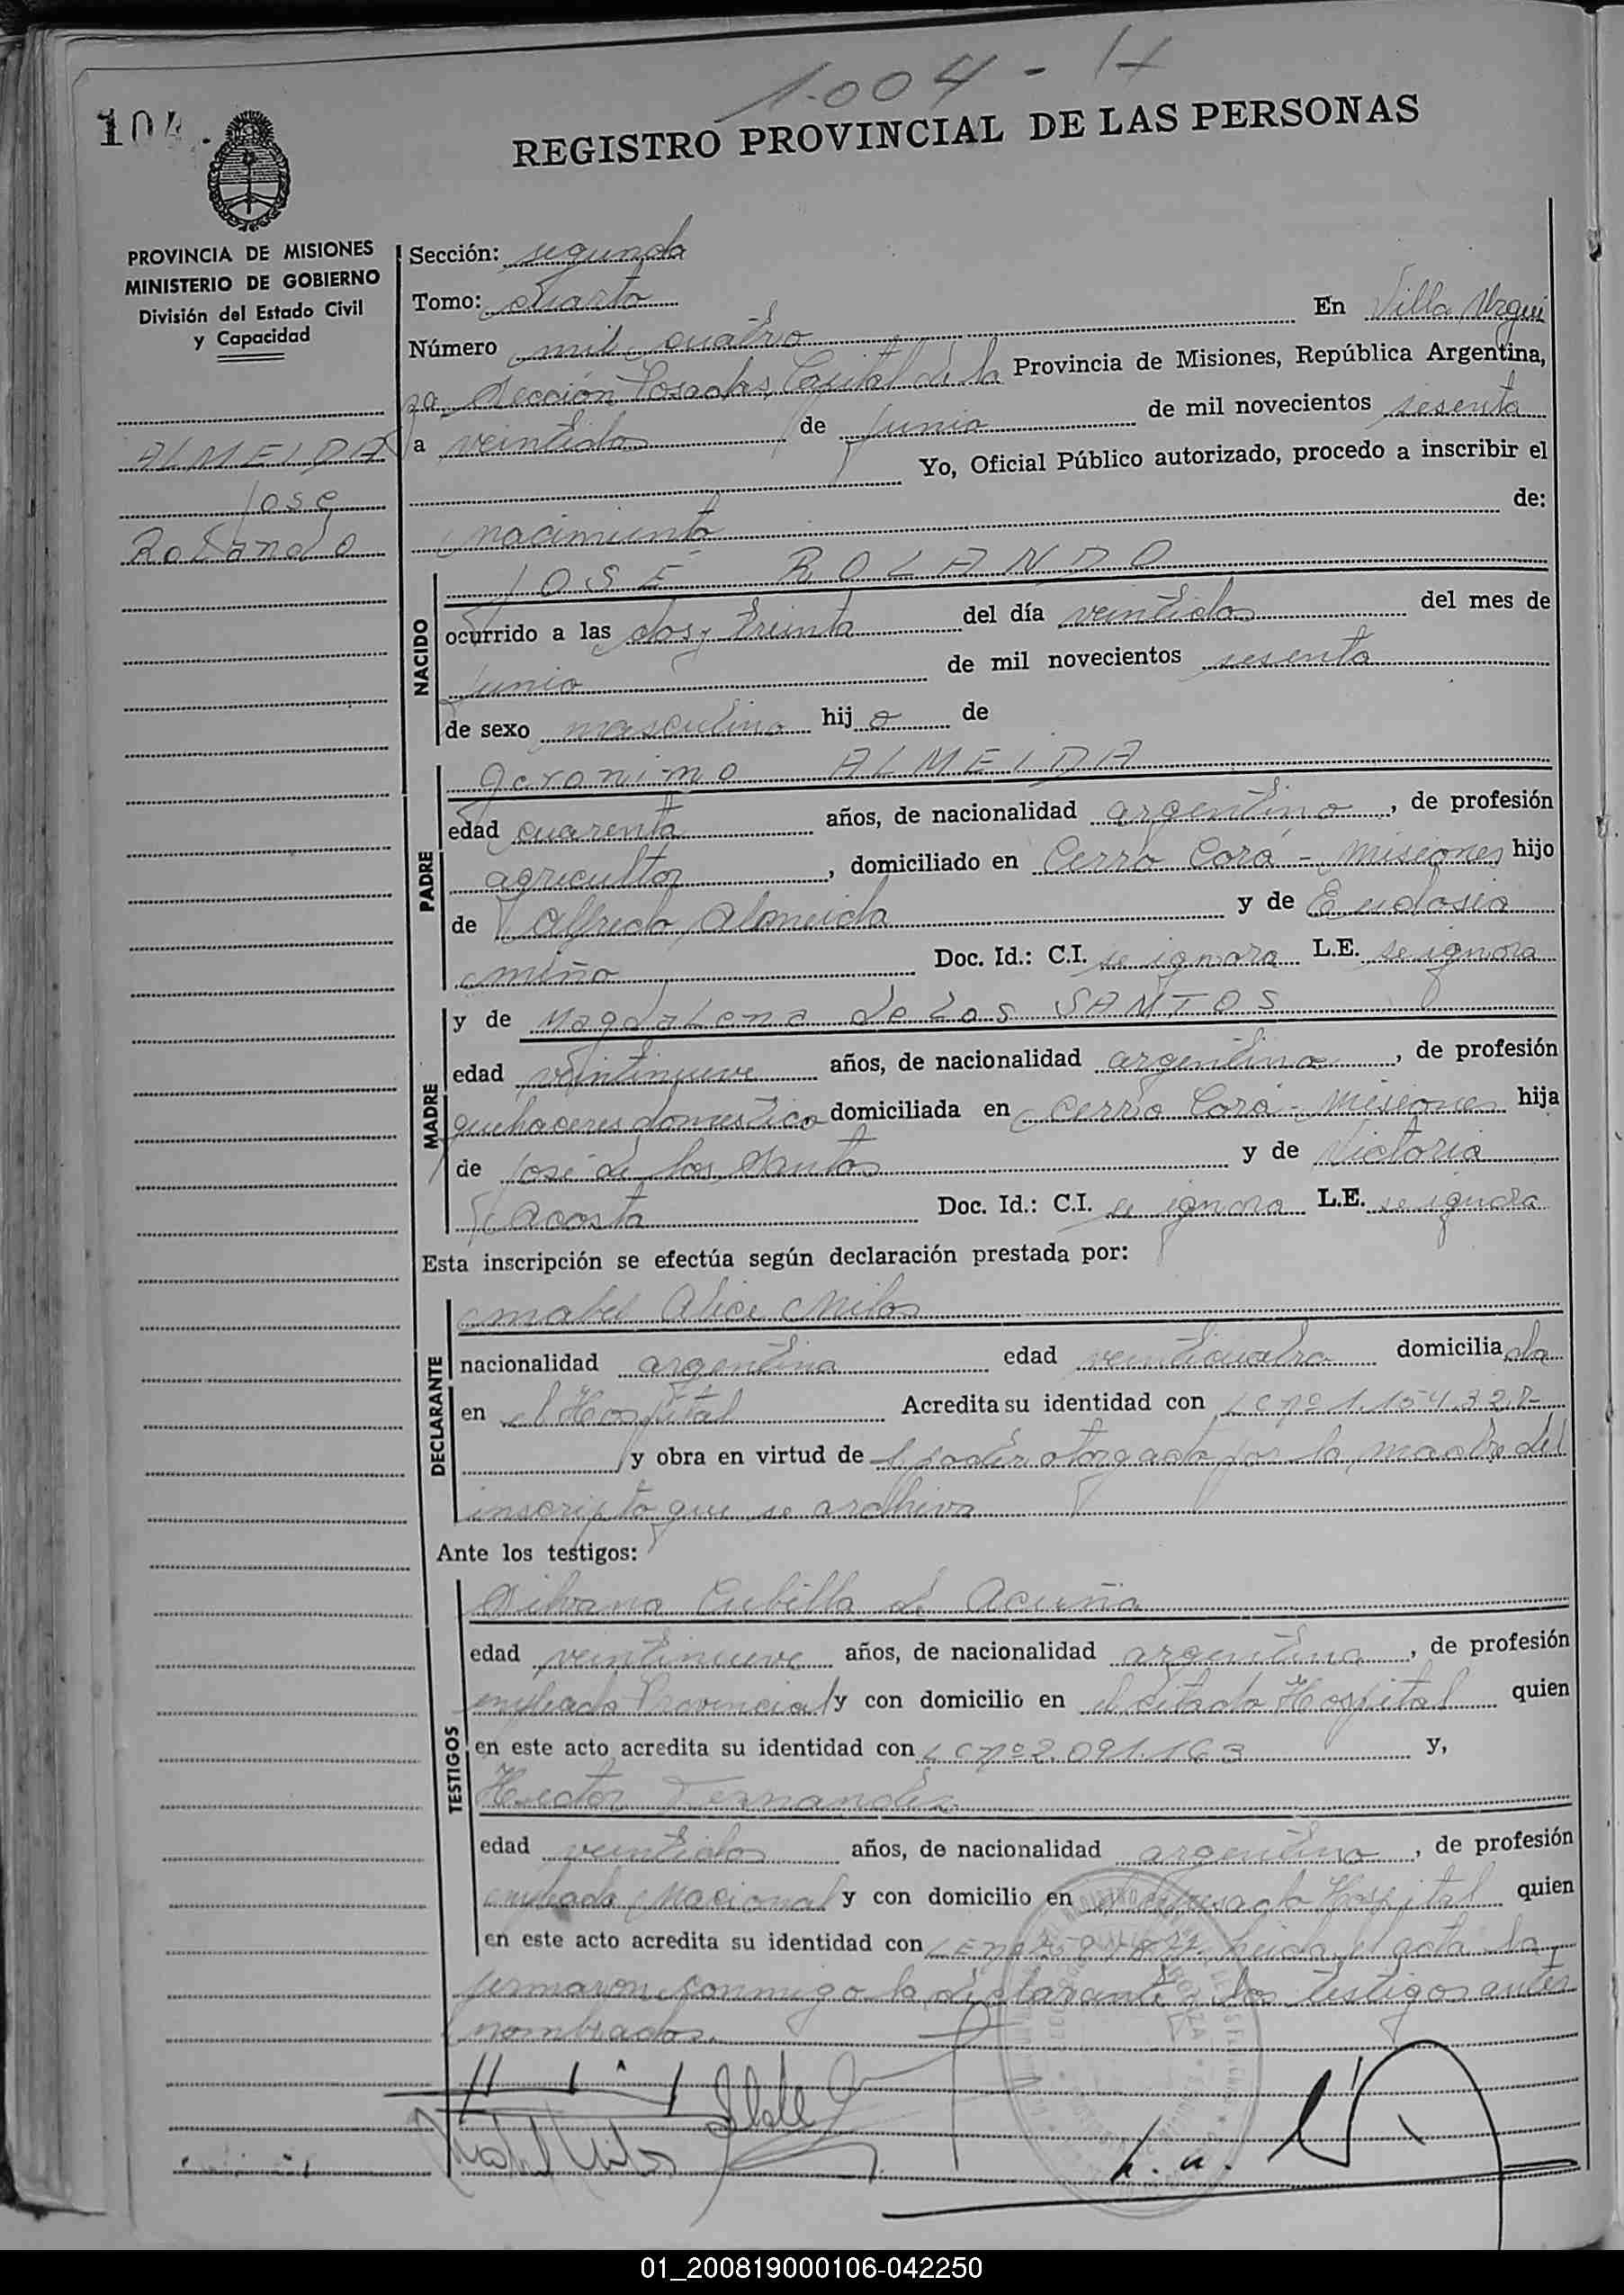 1.004 - H
104
REGISTRO PROVINCIAL DE LAS PERSONAS
PROVINCIA DE MISIONES
MINISTERIO DE GOBIERNO
División del Estado Civil
y Capacidad
ALMEIDA
Jose
Rolando
Sección: segunda
Tomo: cuarto
Número mil cuatro En Villa Urqui
za Sección Posadas, Capital de la Provincia de Misiones, República Argentina,
a veintidos de junio de mil novecientos sesenta
Yo, Oficial Público autorizado, procedo a inscribir el
nacimiento de:
NACIDO
JOSE ROLANDO
ocurrido a las dos y treinta del día veintidos del mes de
junio de mil novecientos sesenta
de sexo masculino hijo de
PADRE
Geronimo ALMEIDA
edad cuarenta años, de nacionalidad argentino, de profesión
agricultor, domiciliado en Cerro Corá - Misiones hijo
de Alfredo Almeida y de Eudosia
Miño Doc. Id.: C.I. se ignora L.E. se ignora
MADRE
y de Magdalena de Los SANTOS
edad veintinueve años, de nacionalidad argentina, de profesión
quehaceres domestico domiciliada en Cerro Corá - Misiones hija
de José de los Santos y de Victoria
Acosta Doc. Id.: C.I. se ignora L.E. se ignora
Esta inscripción se efectúa según declaración prestada por:
DECLARANTE
Mabel Alice Milos
nacionalidad argentina edad veinticuatro domiciliada
en el Hospital Acredita su identidad con LC nº 1.154.327-
y obra en virtud de l poder otorgado por la madre del
inscripto que se archiva
Ante los testigos:
TESTIGOS
Silvana Cubilla de Acuña
edad veintinueve años, de nacionalidad argentina, de profesión
empleada Provincial y con domicilio en el citado Hospital quien
en este acto acredita su identidad con LC nº 2.091.163 y,
Hector Fernandez
edad veintidos años, de nacionalidad argentino, de profesión
empleado Nacional y con domicilio en Hospital quien
en este acto acredita su identidad con LE nº leida el acta la
firmaron conmigo la declarante y los testigos antes
nombrados.
01_200819000106-042250